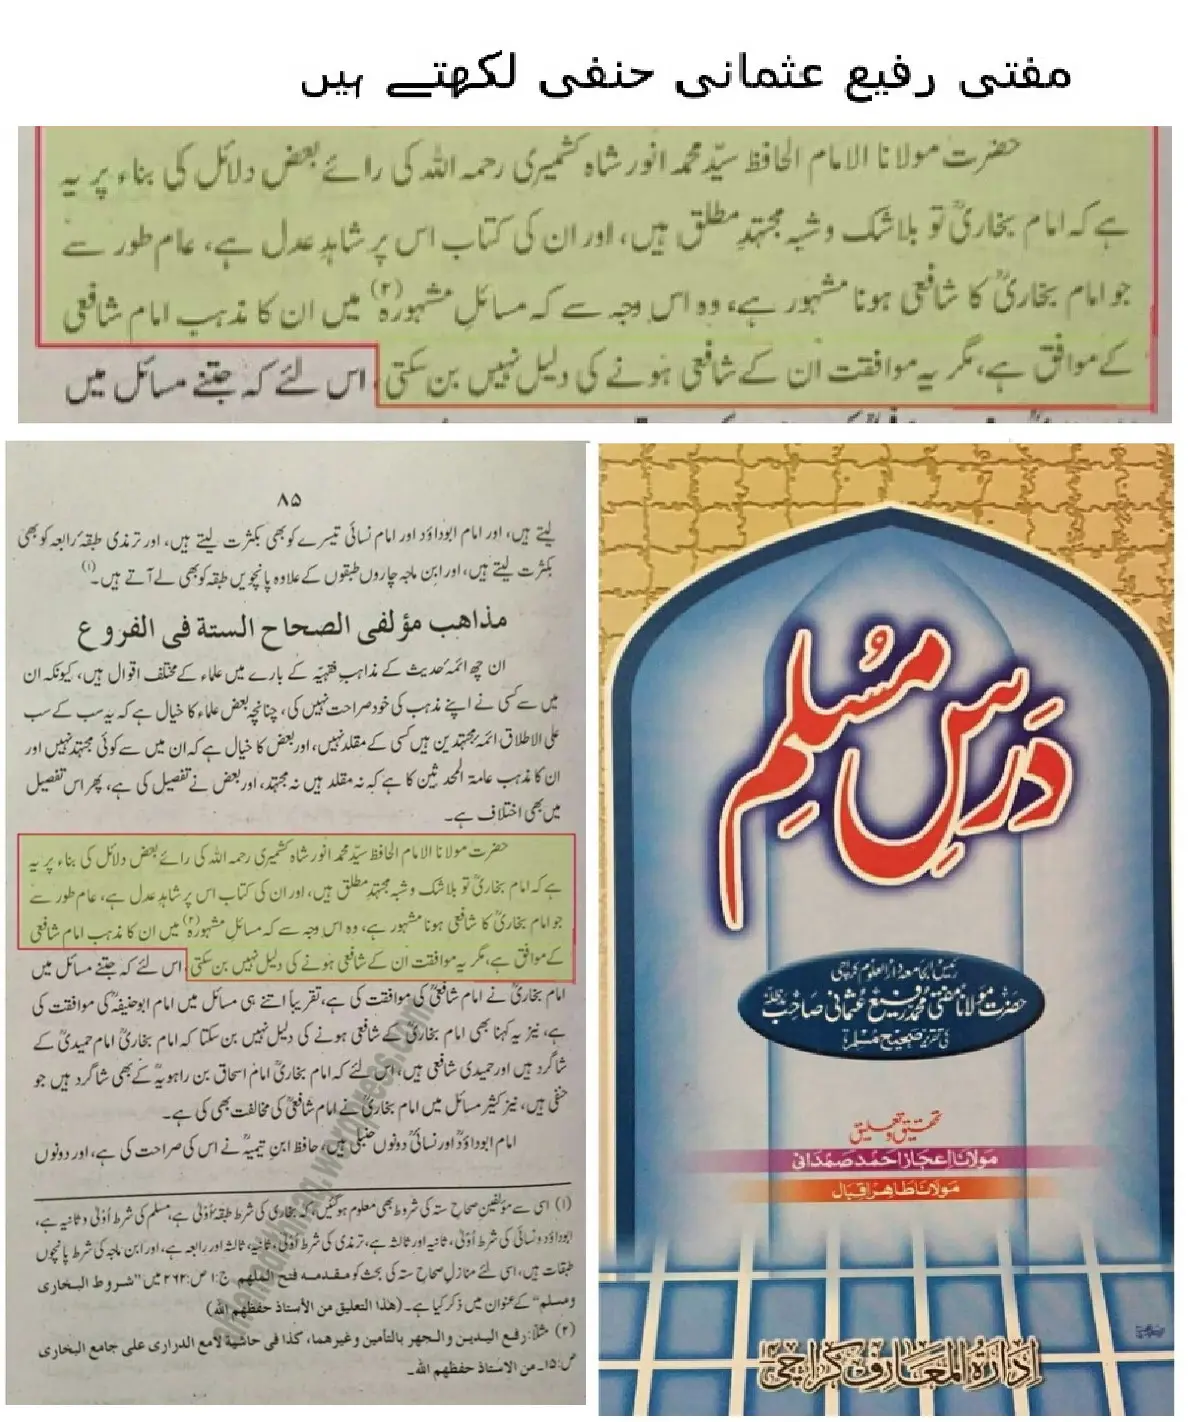 مفتی رفیع عثمانی حنفی لکھتے ہیں
حضرت مولانا الامام الحافظ سیّد محمد انور شاہ کشمیری رحمہ اللہ کی رائے بعض دلائل کی بناء پر یہ
ہے کہ امام بخاریؒ تو بلاشک و شبہ مجتہدِ مطلق ہیں، اور ان کی کتاب اس پر شاہدِ عدل ہے، عام طور سے
جو امام بخاریؒ کا شافعی ہونا مشہور ہے، وہ اس وجہ سے کہ مسائلِ مشہورہ(۲) میں ان کا مذہب امام شافعی
کے موافق ہے، مگر یہ موافقت ان کے شافعی ہونے کی دلیل نہیں بن سکتی، اس لئے کہ جتنے مسائل میں
۸۵
لیتے ہیں، اور امام ابوداؤد اور امام نسائی تیسرے کو بھی بکثرت لیتے ہیں، اور ترمذی طبقۂ رابعہ کو بھی
بکثرت لیتے ہیں، اور ابن ماجہ چاروں طبقوں کے علاوہ پانچویں طبقہ کو بھی لے آتے ہیں۔(۱)
مذاهب مؤلفی الصحاح الستة فی الفروع
ان چھ ائمۂ حدیث کے مذاہبِ فقہیّہ کے بارے میں علماء کے مختلف اقوال ہیں، کیونکہ ان
میں سے کسی نے اپنے مذہب کی خود صراحت نہیں کی، چنانچہ بعض علماء کا خیال ہے کہ یہ سب کے سب
علی الاطلاق ائمۂ مجتہدین ہیں کسی کے مقلد نہیں، اور بعض کا خیال ہے کہ ان میں سے کوئی مجتہد نہیں اور
ان کا مذہب عامۃ المحدثین کا ہے کہ نہ مقلد ہیں نہ مجتہد، اور بعض نے تفصیل کی ہے، پھر اس تفصیل
میں بھی اختلاف ہے۔
حضرت مولانا الامام الحافظ سیّد محمد انور شاہ کشمیری رحمہ اللہ کی رائے بعض دلائل کی بناء پر یہ
ہے کہ امام بخاریؒ تو بلاشک و شبہ مجتہدِ مطلق ہیں، اور ان کی کتاب اس پر شاہدِ عدل ہے، عام طور سے
جو امام بخاریؒ کا شافعی ہونا مشہور ہے، وہ اس وجہ سے کہ مسائلِ مشہورہ(۲) میں ان کا مذہب امام شافعی
کے موافق ہے، مگر یہ موافقت ان کے شافعی ہونے کی دلیل نہیں بن سکتی، اس لئے کہ جتنے مسائل میں
امام بخاریؒ نے امام شافعیؒ کی موافقت کی ہے، تقریباً اتنے ہی مسائل میں امام ابوحنیفہؒ کی موافقت کی
ہے، نیز یہ کہنا بھی امام بخاریؒ کے شافعی ہونے کی دلیل نہیں بن سکتا کہ امام بخاریؒ امام حمیدیؒ کے
شاگرد ہیں اور حمیدی شافعی ہیں، اس لئے کہ امام بخاریؒ امام اسحاق بن راہویہؒ کے بھی شاگرد ہیں جو
حنفی ہیں، نیز کثیر مسائل میں امام بخاریؒ نے امام شافعیؒ کی مخالفت بھی کی ہے۔
امام ابوداؤدؒ اور نسائیؒ دونوں حنبلی ہیں، حافظ ابنِ تیمیہؒ نے اس کی صراحت کی ہے، اور دونوں
(۱) اسی سے مؤلفینِ صحاحِ ستہ کی شروط بھی معلوم ہوگئیں کہ بخاری کی شرط طبقہ اُولیٰ ہے، مسلم کی شرط اُولیٰ و ثانیہ ہے،
ابوداؤد و نسائی کی شرط اُولیٰ، ثانیہ اور ثالثہ ہے، ترمذی کی شرط اُولیٰ، ثانیہ، ثالثہ اور رابعہ ہے، اور ابن ماجہ کی شرط پانچوں
طبقات ہیں، اسی لئے منازلِ صحاحِ ستہ کی بحث کو مقدمہ فتح الملهم ج:۱ ص:۲۶۲ میں "شروط البخاری
ومسلم" کے عنوان میں ذکر کیا ہے۔ (هذا التعلیق من الأستاذ حفظهم الله)
(۲) مثلاً: رفع الیدین والجهر بالتأمین وغیرهما، کذا فی حاشیة لامع الدراری علی جامع البخاری
ص:۱۵۔ من الاستاذ حفظهم الله۔
درسِ مسلم
رئیس الجامعہ دارالعلوم کراچی
حضرت مولانا مفتی محمد رفیع عثمانی صاحب مدظلہ
کی تقریر صحیح مسلم
تحقیق و تعلیق
مولانا اعجاز احمد صمدانی
مولانا طاہر اقبال
ادارۃ المعارف کراچی